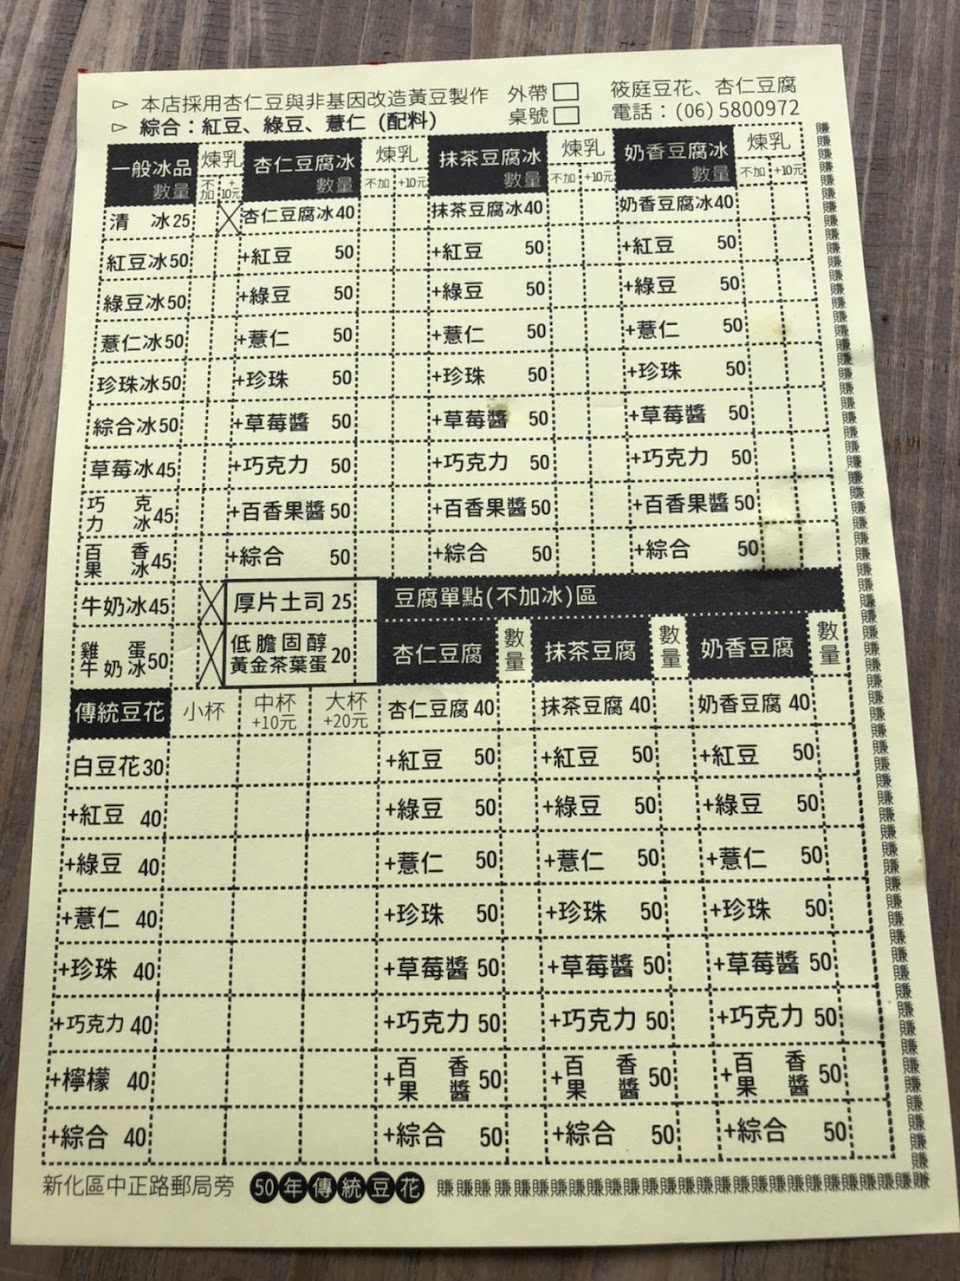 ▻ 本店採用杏仁豆與非基因改造黃豆製作 外帶□ 筱庭豆花、杏仁豆腐
▻ 綜合：紅豆、綠豆、薏仁（配料） 桌號□ 電話：(06) 5800972
一般冰品 數量 煉乳 不加 +10元 杏仁豆腐冰 數量 煉乳 不加 +10元 抹茶豆腐冰 數量 煉乳 不加 +10元 奶香豆腐冰 數量 煉乳 不加 +10元
清冰25 杏仁豆腐冰40 抹茶豆腐冰40 奶香豆腐冰40
紅豆冰50 +紅豆 50 +紅豆 50 +紅豆 50
綠豆冰50 +綠豆 50 +綠豆 50 +綠豆 50
薏仁冰50 +薏仁 50 +薏仁 50 +薏仁 50
珍珠冰50 +珍珠 50 +珍珠 50 +珍珠 50
綜合冰50 +草莓醬 50 +草莓醬 50 +草莓醬 50
草莓冰45 +巧克力 50 +巧克力 50 +巧克力 50
巧克力冰45 +百香果醬 50 +百香果醬50 +百香果醬 50
百香果冰45 +綜合 50 +綜合 50 +綜合 50
牛奶冰45 厚片土司 25 豆腐單點(不加冰)區
雞蛋牛奶冰50 低膽固醇黃金茶葉蛋20 杏仁豆腐 數量 抹茶豆腐 數量 奶香豆腐 數量
傳統豆花 小杯 中杯+10元 大杯+20元 杏仁豆腐 40 抹茶豆腐 40 奶香豆腐 40
白豆花30 +紅豆 50 +紅豆 50 +紅豆 50
+紅豆 40 +綠豆 50 +綠豆 50 +綠豆 50
+綠豆 40 +薏仁 50 +薏仁 50 +薏仁 50
+薏仁 40 +珍珠 50 +珍珠 50 +珍珠 50
+珍珠 40 +草莓醬 50 +草莓醬 50 +草莓醬 50
+巧克力 40 +巧克力 50 +巧克力 50 +巧克力 50
+檸檬 40 +百香果醬 50 +百香果醬 50 +百香果醬 50
+綜合 40 +綜合 50 +綜合 50 +綜合 50
新化區中正路郵局旁 50年傳統豆花 賺賺賺賺賺賺賺賺賺賺賺賺賺賺賺賺賺賺賺賺賺賺賺賺賺賺賺